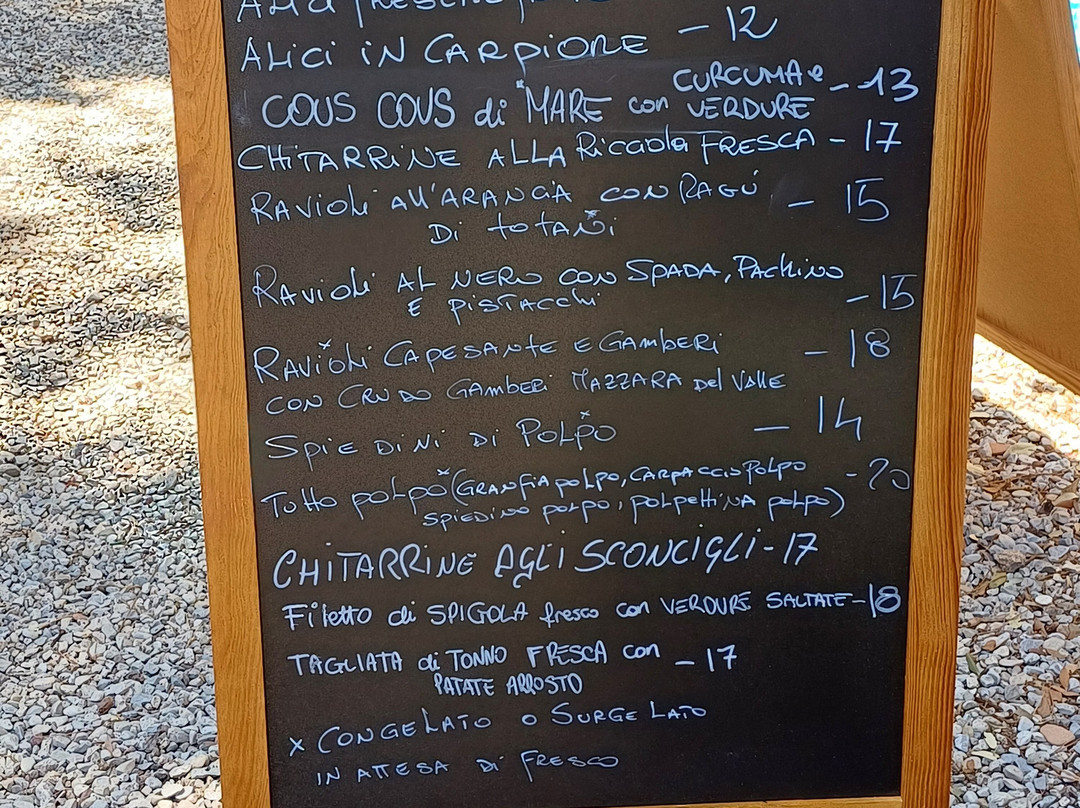 ALICI IN CARPIONE - 12
CURCUMA e
COUS COUS di *MARE con VERDURE - 13
CHITARRINE ALLA Ricciola FRESCA - 17
RAVIOLI ALL'ARANCIA CON RAGÚ - 15
DI TOTANI*
RAVIOLI AL NERO CON SPADA, PACHINO
E PISTACCHI - 15
RAVIOLI* CAPESANTE E GAMBERI - 18
CON CRUDO GAMBERI MAZZARA DEL VALLE
SPIEDINI DI POLPO* - 14
TUTTO POLPO* (GRANFIA POLPO, CARPACCIO POLPO - 20
SPIEDINO POLPO, POLPETTINA POLPO)
CHITARRINE AGLI SCONCIGLI - 17
Filetto di SPIGOLA fresco con VERDURE SALTATE - 18
TAGLIATA di TONNO FRESCA con - 17
PATATE ARROSTO
x CONGELATO O SURGELATO
IN ATTESA DI FRESCO